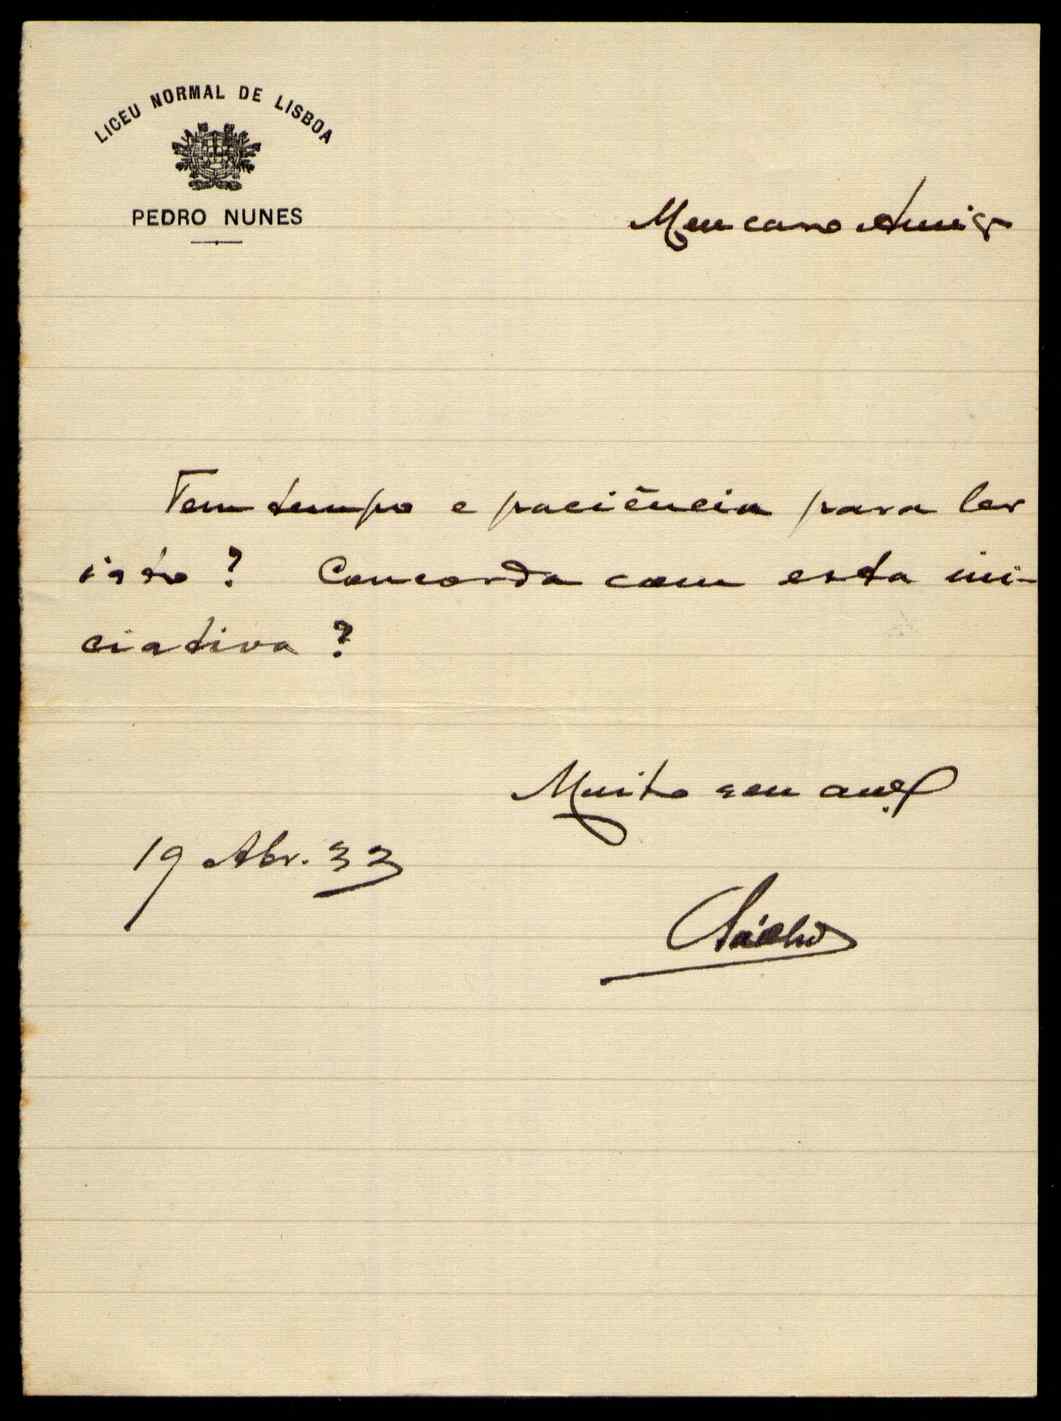 LICEU NORMAL DE LISBOA
PEDRO NUNES
Meu caro Amigo
Tem tempo e paciência para ler
isto? Concorda com esta ini-
ciativa?
Muito seu
19 Abr. 33